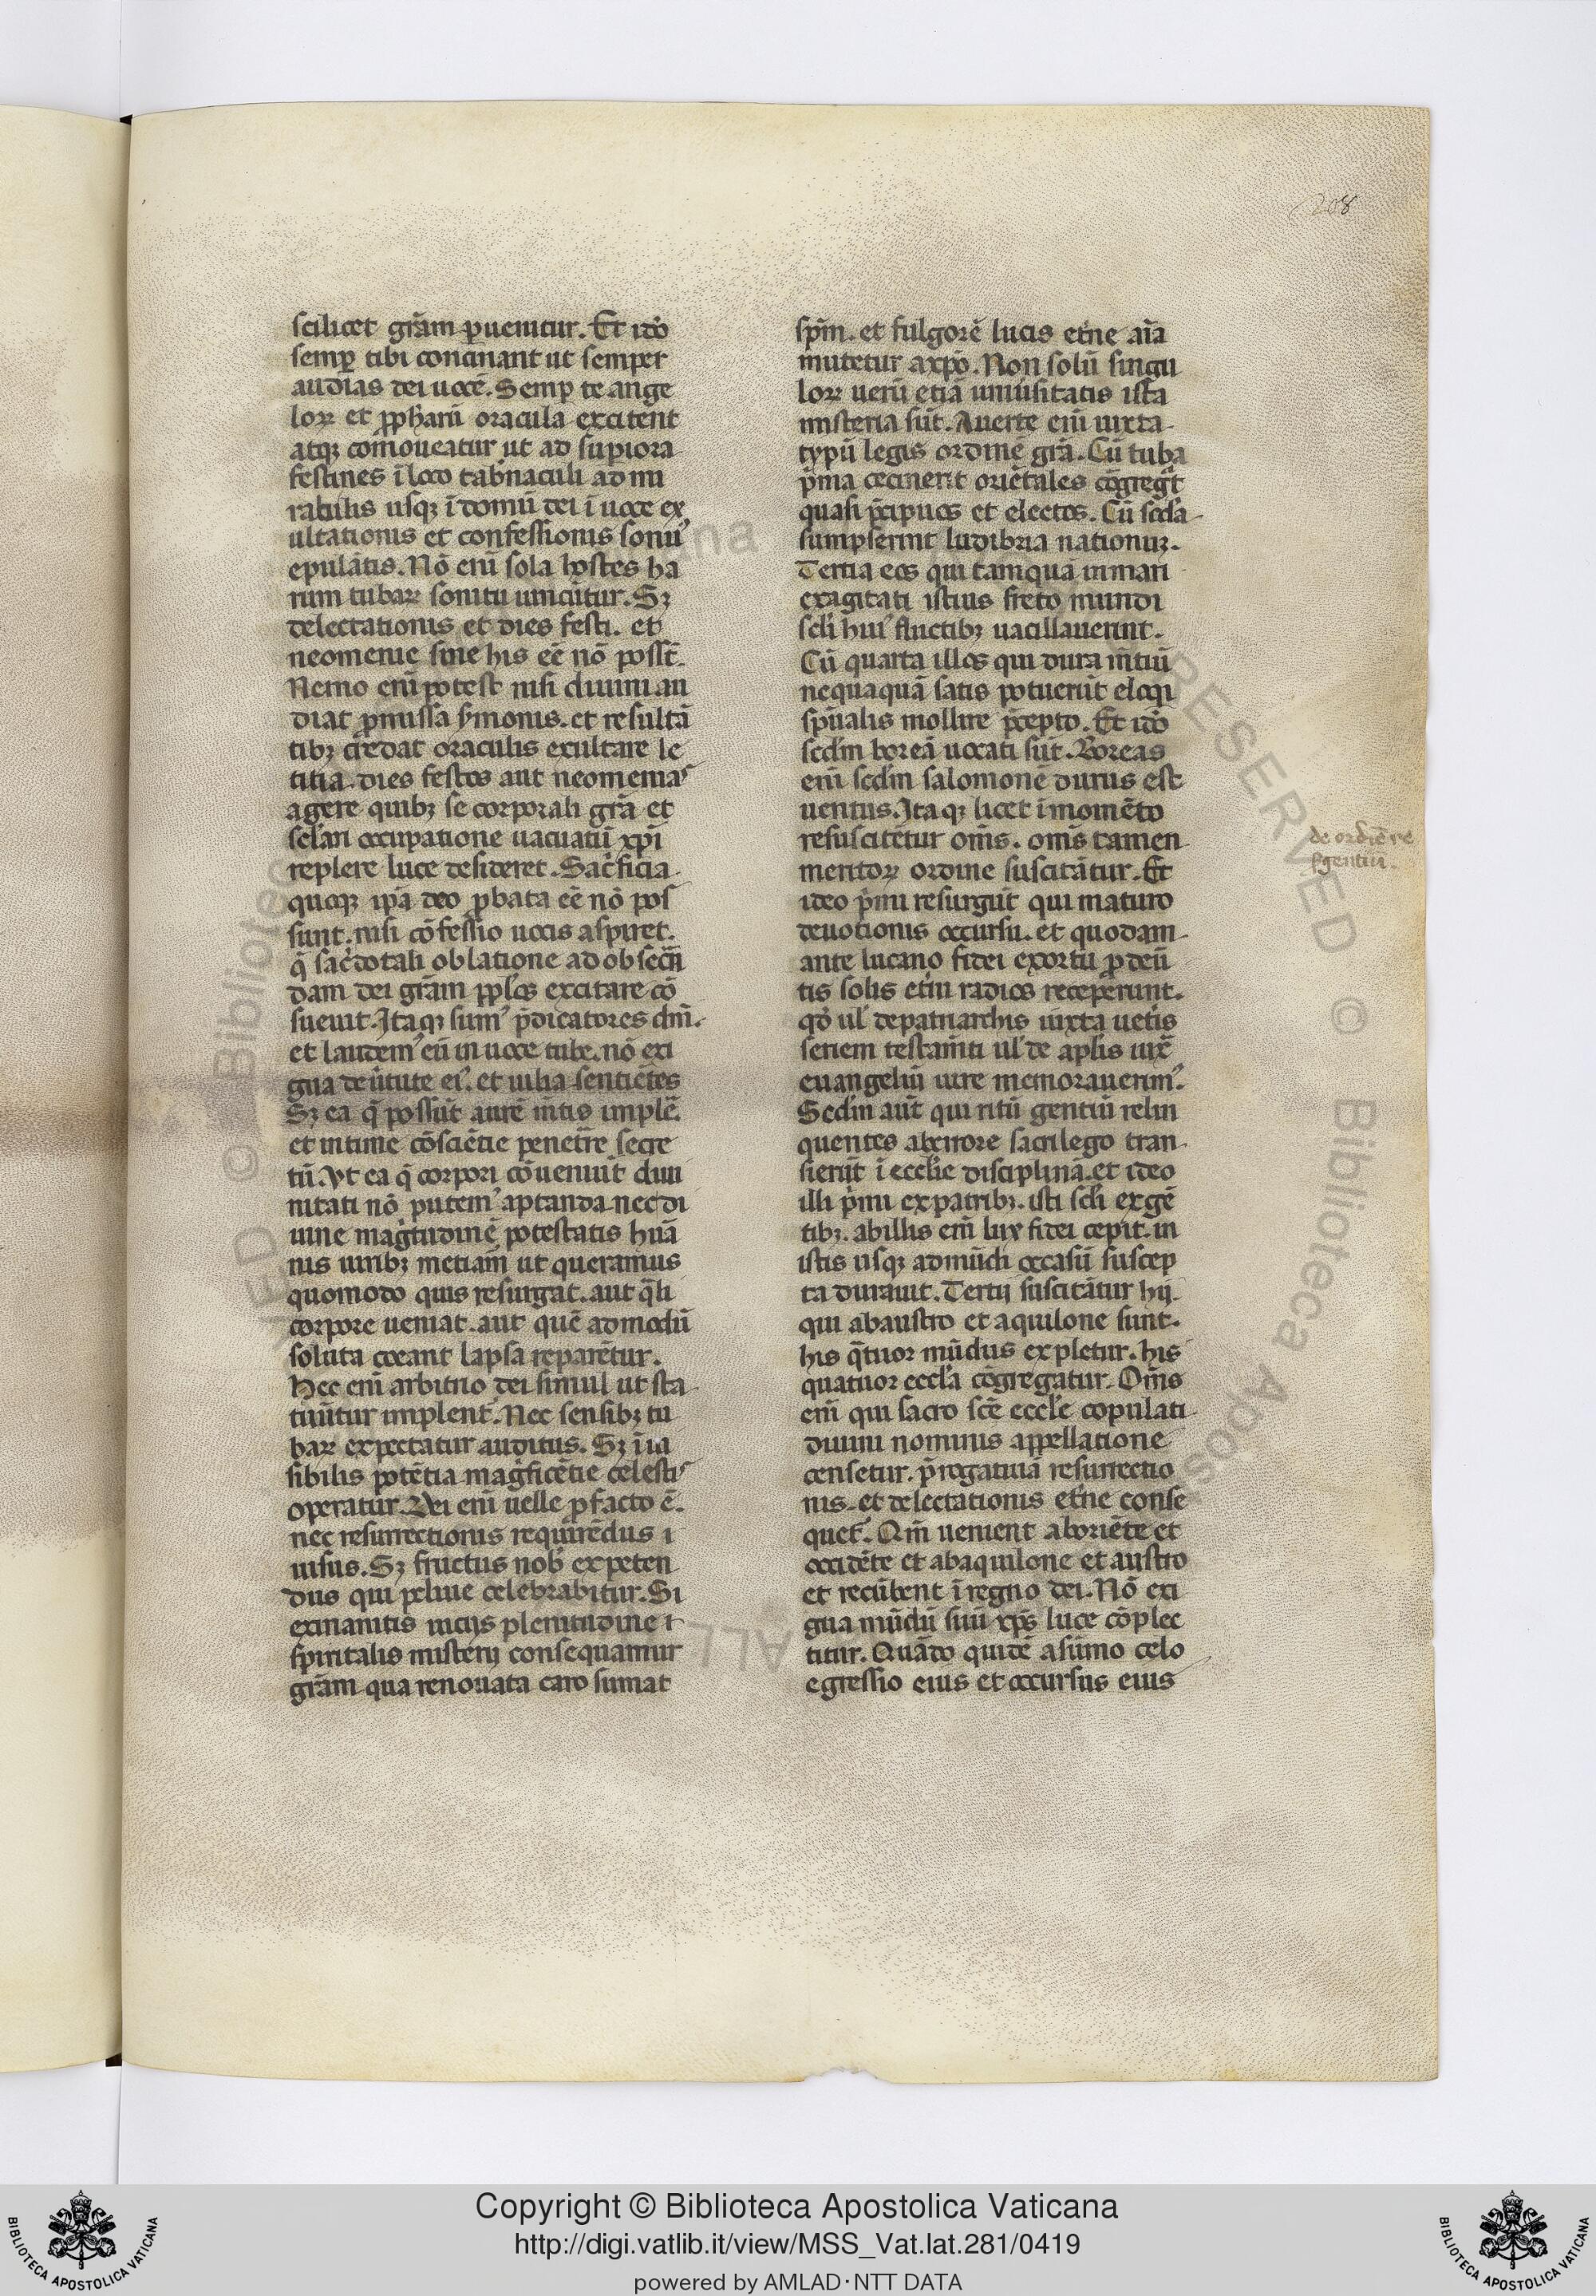 208
scilicet grãm ꝑuenitur. Et idõ
semꝑ tibi concinant ut semper
audias dei uocẽ. Semꝑ te ange
loꝝ et ꝓphaꝝ oracula excitent
atqꝫ comoueatur ut ad supiora
festines ĩ loco tabnaculi ad mi
rabilis usqꝫ ĩ domũ dei ĩ uoce ex
ultationis et confessionis sonꝰ
epulãtis. Nõ enĩ sola hostes ha
rum tubaꝝ sonitu uincũtur. Sꝫ
delectationis et dies festi. et
neomenie sine his eẽ nõ possũt.
Nemo enĩ potest nisi diuini au
diat ꝓmissa ẜmonis. et resultã
tibꝫ credat oraculis exultare le
titia. dies festos aut neomenias
agere quibꝫ se corporali grã et
sclari occupatione uacuatũ xp̃i
replere luce desideret. Sacͥficia
quoqꝫ ipã deo ꝓbata eẽ nõ pos
sunt. nisi cõfessio uocis aspiret.
q̃ sacdotali oblatione ad obsecñ
dam dei grãm pplõs excitare cõ
sueuit. Itaqꝫ simꝰ p̃dicatores dñi.
et laudemꝰ eũ in uoce tube. nõ exi
gua de ũtute eiꝰ. et uilia sentiẽtes
Sꝫ ea q̃ possũt aurẽ m̃tis implẽ.
et intime cõsciẽtie penetrẽ secre
tũ. Vt ea q̃ corpori cõueniũt diui
nitati nõ putemꝰ aptanda nec di
uine magͥtudinẽ potestatis huã
nis uiribꝫ metiam̃ ut queramus
quomodo quis resurgat. aut q̃li
corpore ueniat. aut quẽ admodũ
soluta coeant lapsa reparẽtur.
Hec enĩ arbitrio dei simul ut sta
tuũtur implent᷑. Nec sensibꝫ tu
baꝝ expectatur auditus. Sꝫ ĩui
sibilis potẽtia magͥficẽtie celestis
operatur. Dei enĩ uelle ꝓ facto ẽ.
nec resurrectionis requirẽdus ĩ
uisus. Sꝫ fructus nob̃ expeten
dus qui ꝑ liue celebrabitur. Si
exinanitis uicijs plenitudine ĩ
spiritalis misterij consequamur
grãm qua renouata caro sumat
sp̃m. et fulgorẽ lucis et̃ne aĩa
mutetur a xp̃o. Non solũ singu
loꝝ uerũ etiã uniũsitatis ista
misteria sũt. Auerte enĩ iuxta
typũ legis ordinẽ grã. Cũ tuba
pͥma cecinerit oriẽtales cõgregat
quasi p̃cipuos et electos. Cũ scda
sumpserint ludibria nationuꝫ.
Tertia eos qui tamquã in mari
exagitati istius freto mundi
scli huiꝰ fluctibꝫ uacillauerint.
Cũ quarta illos qui dura m̃tiũ
nequaquã satis potuerũt eloqi
spũalis mollire p̃cepto. Et idõ
scdm boreã uocati sũt. Boreas
enĩ scdm salomonẽ durus est
uentus. Itaqꝫ licet ĩ momẽto
resuscitẽtur om̃s. om̃s tamen
meritoꝝ ordine suscitãtur. Et
ideo pͥmi resurgũt qui maturo
deuotionis occursu. et quodam
ante lucano fidei exortu ꝓdeũ
tis solis et̃ni radios receperunt.
qđ uł de patriarchis iuxta uetis
seriem testam̃ti uł de aplis iuxᵃ
euangeliũ iure memorauerimꝰ.
Scdm aũt qui ritũ gentiũ relin
quentes ab errore sacrilego tran
sierũt ĩ eccłie disciplinã. et ideo
illi pͥmi ex patribꝫ. isti scđi ex gẽ
tibꝫ. ab illis enĩ lux fidei cepit. in
istis usqꝫ ad mũdi occasũ suscep
ta durauit. Tertij suscitãtur hij
qui ab austro et aquilone sunt.
his q̃tuor mũdus expletur. his
quatuor eccła cõgregatur. Om̃s
enĩ qui sacro scẽ eccłe copulati
diuini nominis appellatione
censetur. p̃rogatiuã resurrectio
nis. et delectationis et̃ne conse
quet᷑. Qm̃ uenient ab oriẽte et
occidẽte et ab aquilone et austro
et recũbent ĩ regno dei. Nõ exi
gua mũdũ suũ xp̃s luce cõplec
titur. Quãdo quidẽ a sũmo celo
egressio eius et occursus eius
de ordiẽ re
surgentiũ.
Copyright © Biblioteca Apostolica Vaticana
http://digi.vatlib.it/view/MSS_Vat.lat.281/0419
powered by AMLAD·NTT DATA
BIBLIOTECA APOSTOLICA VATICANA
BIBLIOTECA APOSTOLICA VATICANA